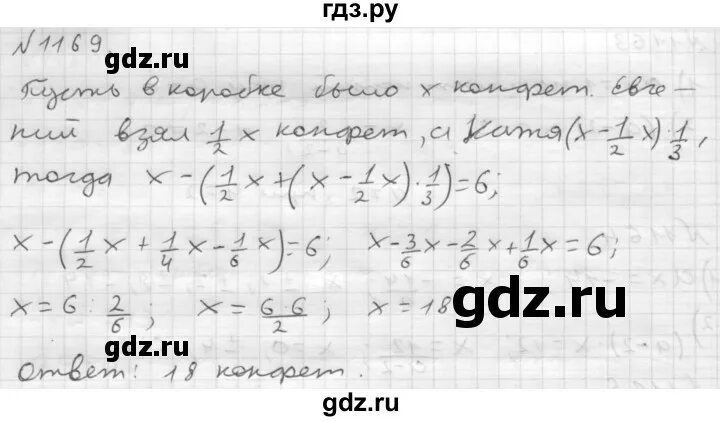 гдз.ру
№1169.
Пусть в коробке было x конфет. Евге-
ний взял 1/2 x конфет, а Катя (x - 1/2 x) · 1/3,
тогда x - (1/2 x + (x - 1/2 x) · 1/3) = 6;
x - (1/2 x + 1/4 x - 1/6 x) = 6; x - 3/6 x - 2/6 x + 1/6 x = 6;
x = 6 : 2/6; x = 6·6/2; x = 18
Ответ: 18 конфет.
gdz.ru
gdz.ru